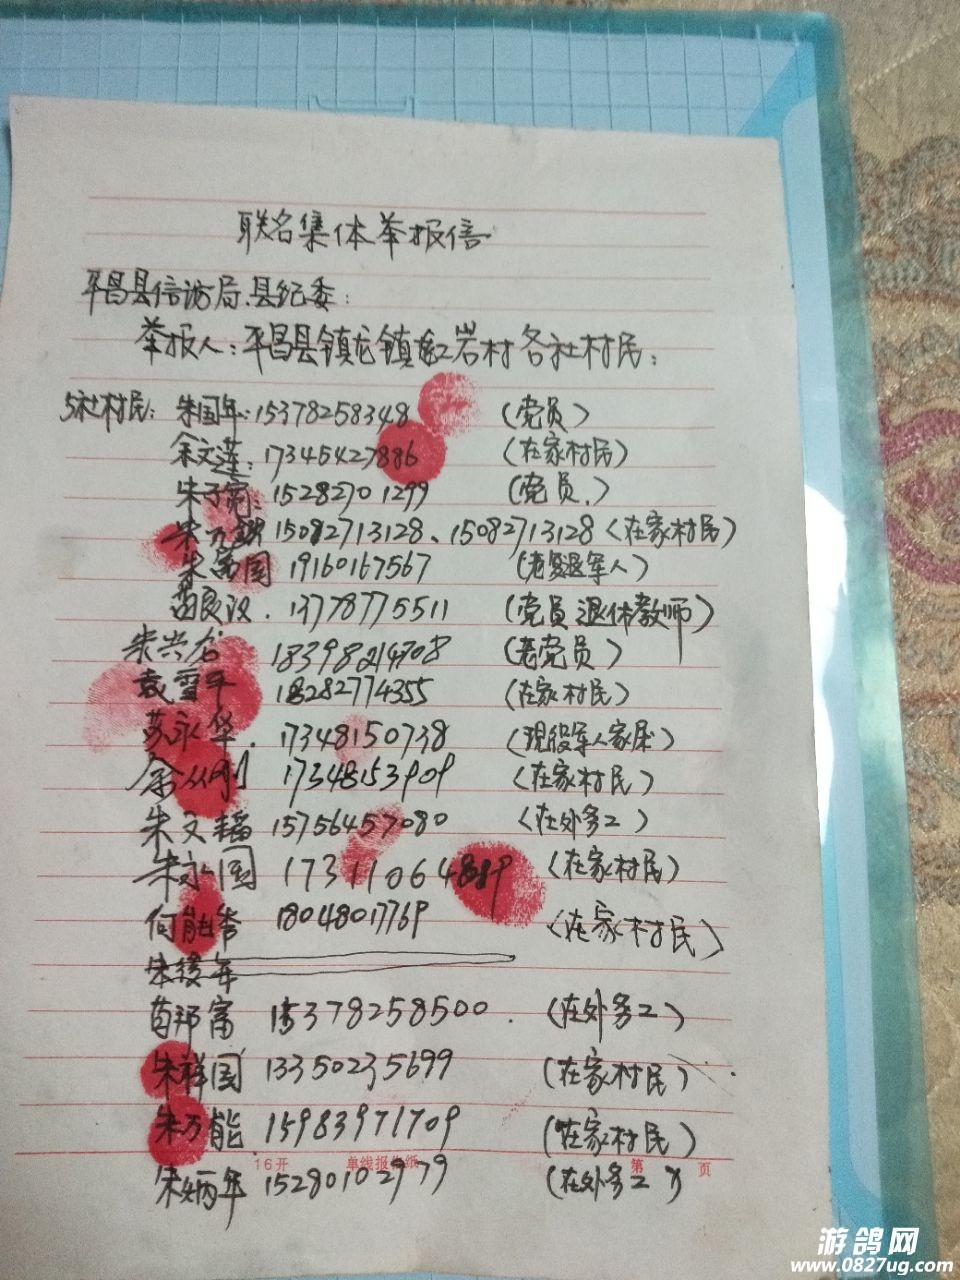 联名集体举报信
平昌县信访局.县纪委:
举报人:平昌县镇龙镇龙岩村各社村民:
5社村民:朱国年:15378258348 (党员)
余文莲:17345427886 (在家村民)
朱子 :15282701299 (党员.)
朱万 15082713128、15082713128(在家村民)
朱 国 19160167567 (老复退军人)
苗良汉.13778775511 (党员退休教师)
朱兴谷 18398214708 (老党员)
袁雪平 18282774355 (在家村民)
苏永华.17348150738 (现役军人家属)
余从刚 17348153909 (在家村民)
朱文 15756457080 (在外务工)
朱永国 17311064889 (在家村民)
何能 18048017769 (在家村民)
朱 年
苟邦富 15378258500. (在外务工)
朱祥国 13350235699 (在家村民)
朱万能 15983971709 (在家村民)
朱炳年 15280102979 (在外务工)
16开 单线报告纸 第 页
游鸽网
www.0827ug.com